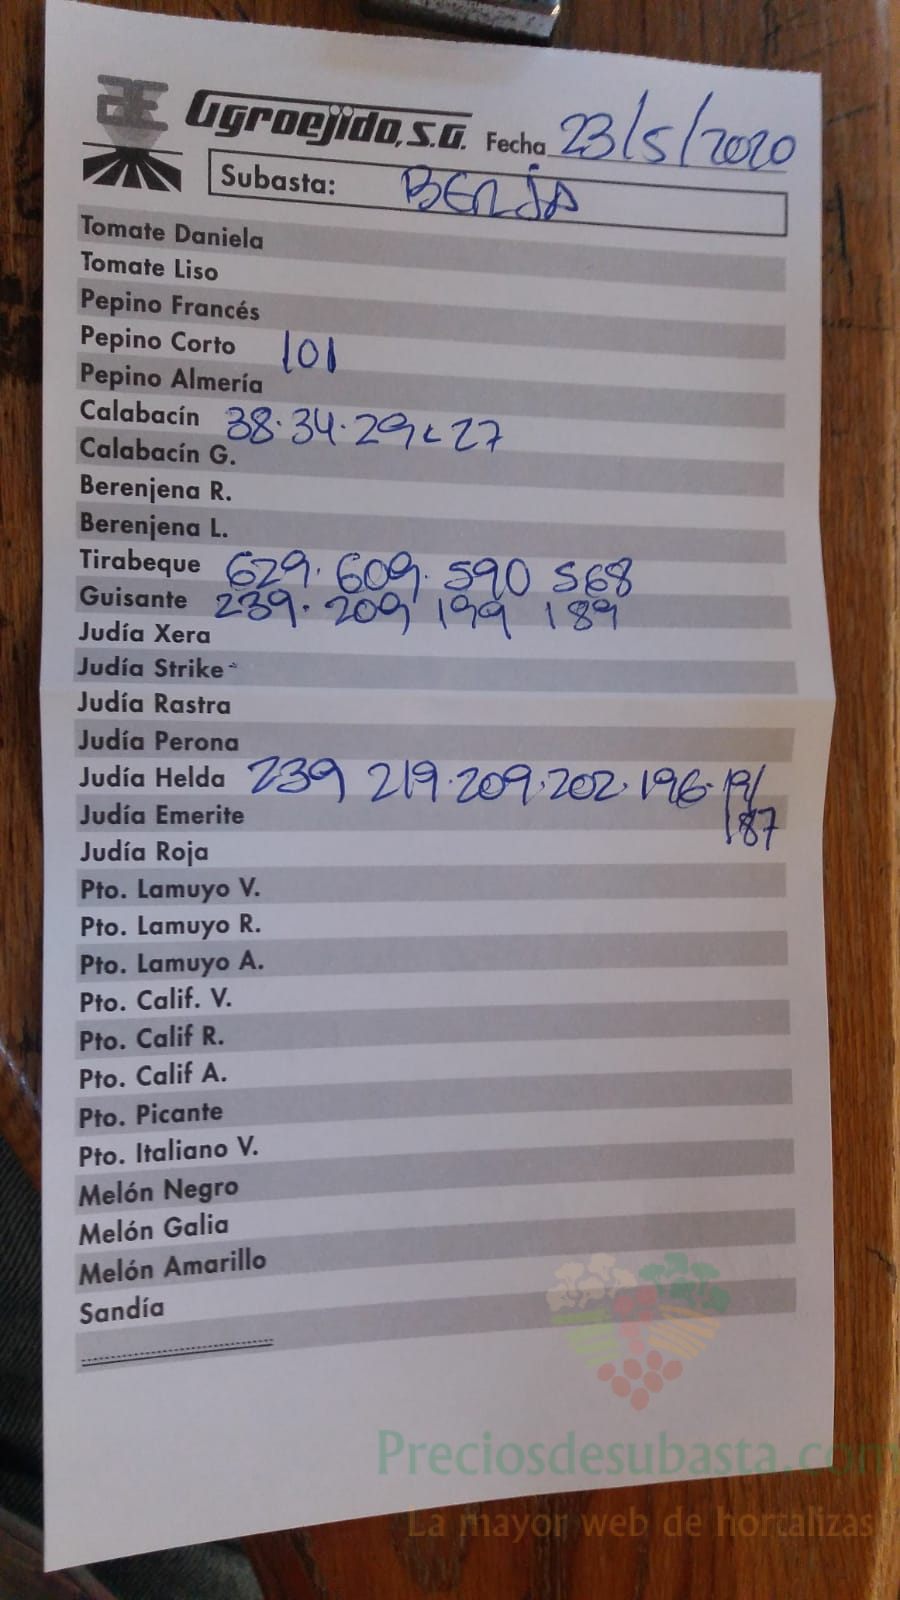 Agroejido, S.A. Fecha 23/5/2020
Subasta: BERJA
Tomate Daniela
Tomate Liso
Pepino Francés
Pepino Corto 101
Pepino Almería
Calabacín 38.34.29 27
Calabacín G.
Berenjena R.
Berenjena L.
Tirabeque 629.609.590 568
Guisante 239.209 199 189
Judía Xera
Judía Strike
Judía Rastra
Judía Perona
Judía Helda 239 219.209.202.196.191
187
Judía Emerite
Judía Roja
Pto. Lamuyo V.
Pto. Lamuyo R.
Pto. Lamuyo A.
Pto. Calif. V.
Pto. Calif R.
Pto. Calif A.
Pto. Picante
Pto. Italiano V.
Melón Negro
Melón Galia
Melón Amarillo
Sandía
Preciosdesubasta.com
La mayor web de hortalizas